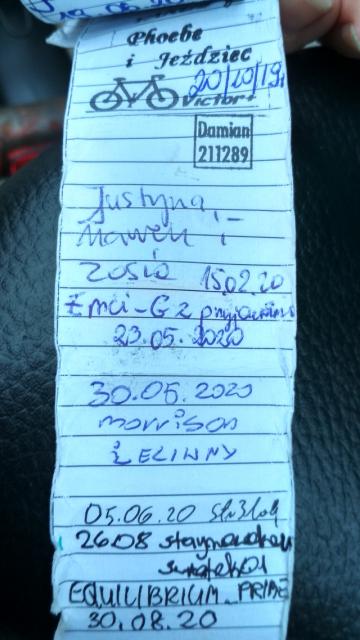 Phoebe
i Jeździec
20/10/19r
VICTOR
Damian
211289
Justyna,
Marek i
Zosia 15.02.20
23.05.2020
30.05.2020
morrison
ŻELIWNY
05.06.20
26.08
EQUILIBRIUM_PRIME
30.08.20